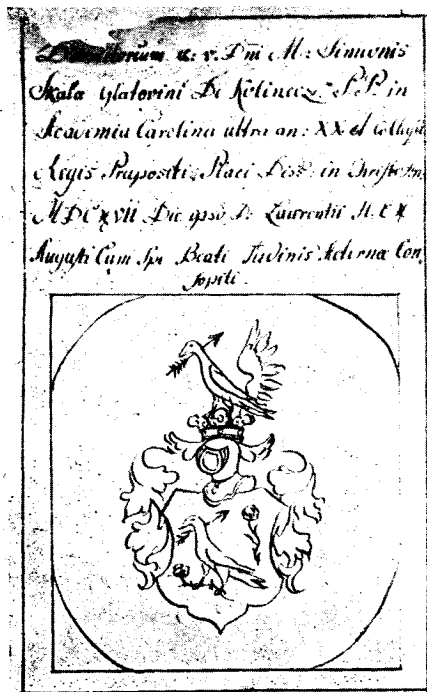 Dormitorium a: v. Dnī M: Simonis
Skala Glatovini De Kolinecz P.P. in
Academia Carolina ultra an: XX et Collegii
Regis Prapositi Placi Diss: in Christo An
MDCXVII Die ipso D: Laurentii
Augusti Cum Spe Beati Æternæ Con
sopiti.